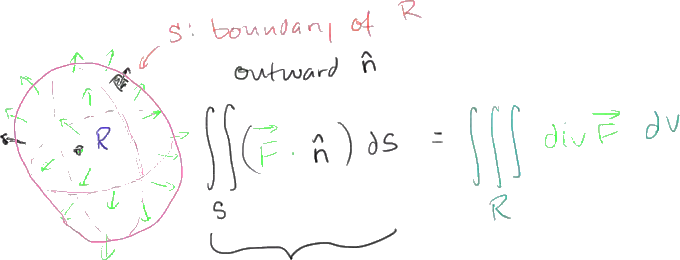 S: boundary of R
outward n̂
R
∬_S (F⃗ · n̂) ds = ∭_R div F⃗ dV